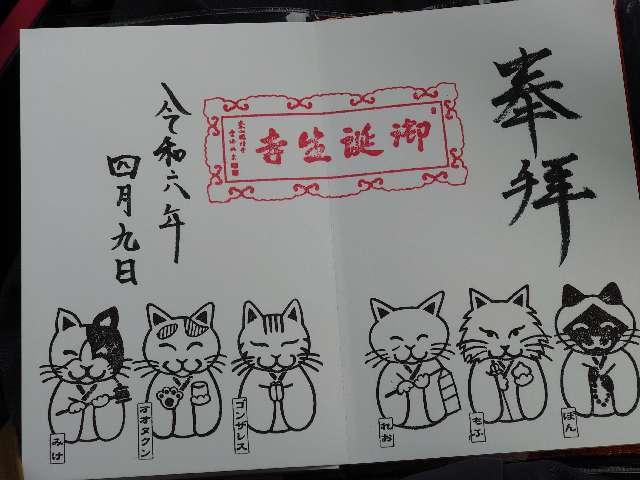 奉拝
御誕生寺
令和六年
四月九日
みけ
オオタクン
ゴンザレス
れお
もふ
ぽん